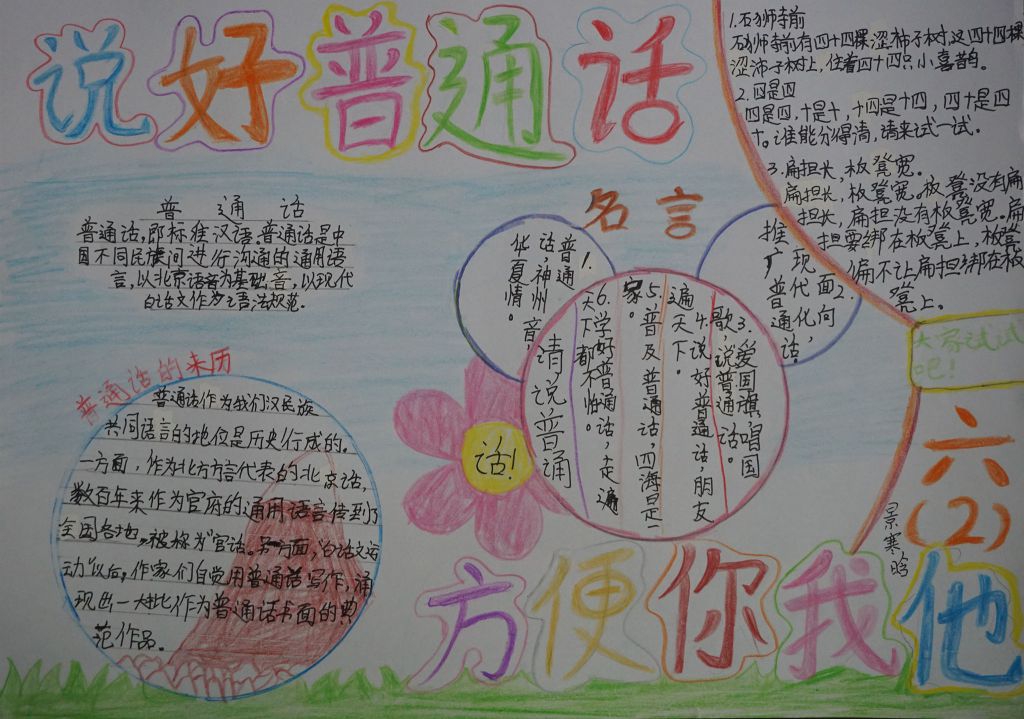 说好普通话
普通话
普通话,即标准汉语。普通话是中
国不同民族间进行沟通的通用语
言,以北京语音为基础音,以现代
白话文作为语法规范。
普通话的来历
普通话作为我们汉民族
共同语言的地位是历史行成的。
一方面,作为北方方言代表的北京话,
数百年来作为官府的通用语言传到了
全国各地,被称为"官话。另一方面,"白话文运
动"以后,作家们自觉用普通话写作,涌
现出一大批作为普通话书面的典
范作品。
名言
1.
普通
话,神州音,
华夏情。
2.
面向
现代化,
推广普通话。
3.爱国旗,唱国
歌,说普通话。
4.说好普通话,朋友
遍天下。
5.普及普通话,四海是一
家。
6.学好普通话,走遍
天下都不怕。
请说普通
话!
1.石狮寺前
石狮寺前有四十四棵涩柿子树,这四十四棵
涩柿子树上,住着四十四只小喜鹊。
2.四是四
四是四,十是十,十四是十四,四十是四
十。谁能分得清,请来试一试。
3.扁担长,板凳宽。
扁担长,板凳宽。板凳没有扁
担长,扁担没有板凳宽。扁
担要绑在板凳上,板凳
偏不让扁担绑在板
凳上。
大家试试
吧!
六
(2)
景寒晗
方便你我他